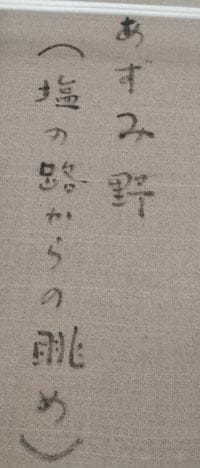 あずみ野
（塩の路からの眺め）